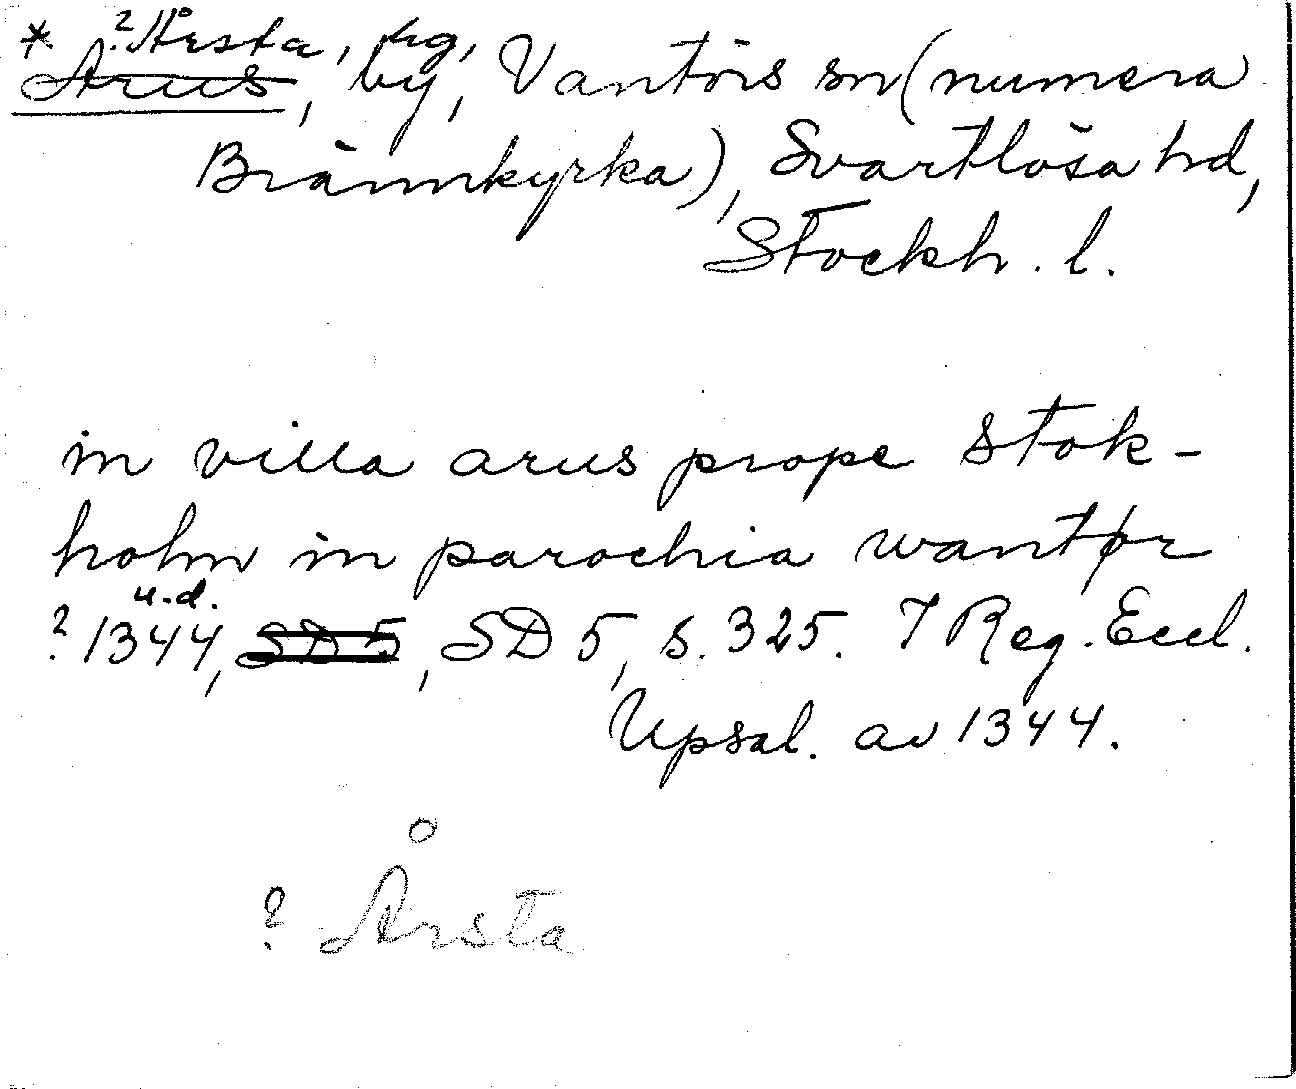 * ? Årsta, hg,
Arus, by, Vantörs sn (numera
Brännkyrka), Svartlösa hd,
Stockh. l.
in villa arus prope Stok-
holm in parochia wantør
u.d.
? 1344, SD 5, SD 5, s. 325. I Reg. Eccl.
Upsal. av 1344.
? Årsta